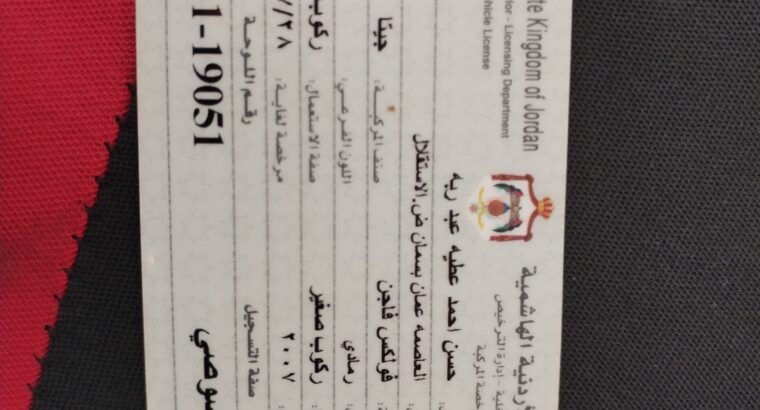 ردنية الهاشمية te Kingdom of Jordan
إدارة الترخيص rior - Licensing Department
خصة المركبة ehicle License
حسن احمد عطيه عبد ربه
العاصمه عمان بسمان ض.الاستقلال
فولكس فاجن صنف المركبة: جيتا
رمادي اللون الفرعي:
ركوب صغير صفة الاستعمال: ركوب
٢٠٠٧ مرخصة لغاية: /٢٨
صفة التسجيل رقم اللوحة
صوصي 1-19051